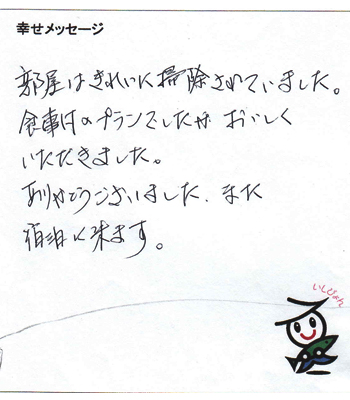 幸せメッセージ
部屋はきれいに掃除されていました。
食事付のプランでしたが おいしく
いただきました。
ありがとうございました。また
宿泊に来ます。
いしぴょん